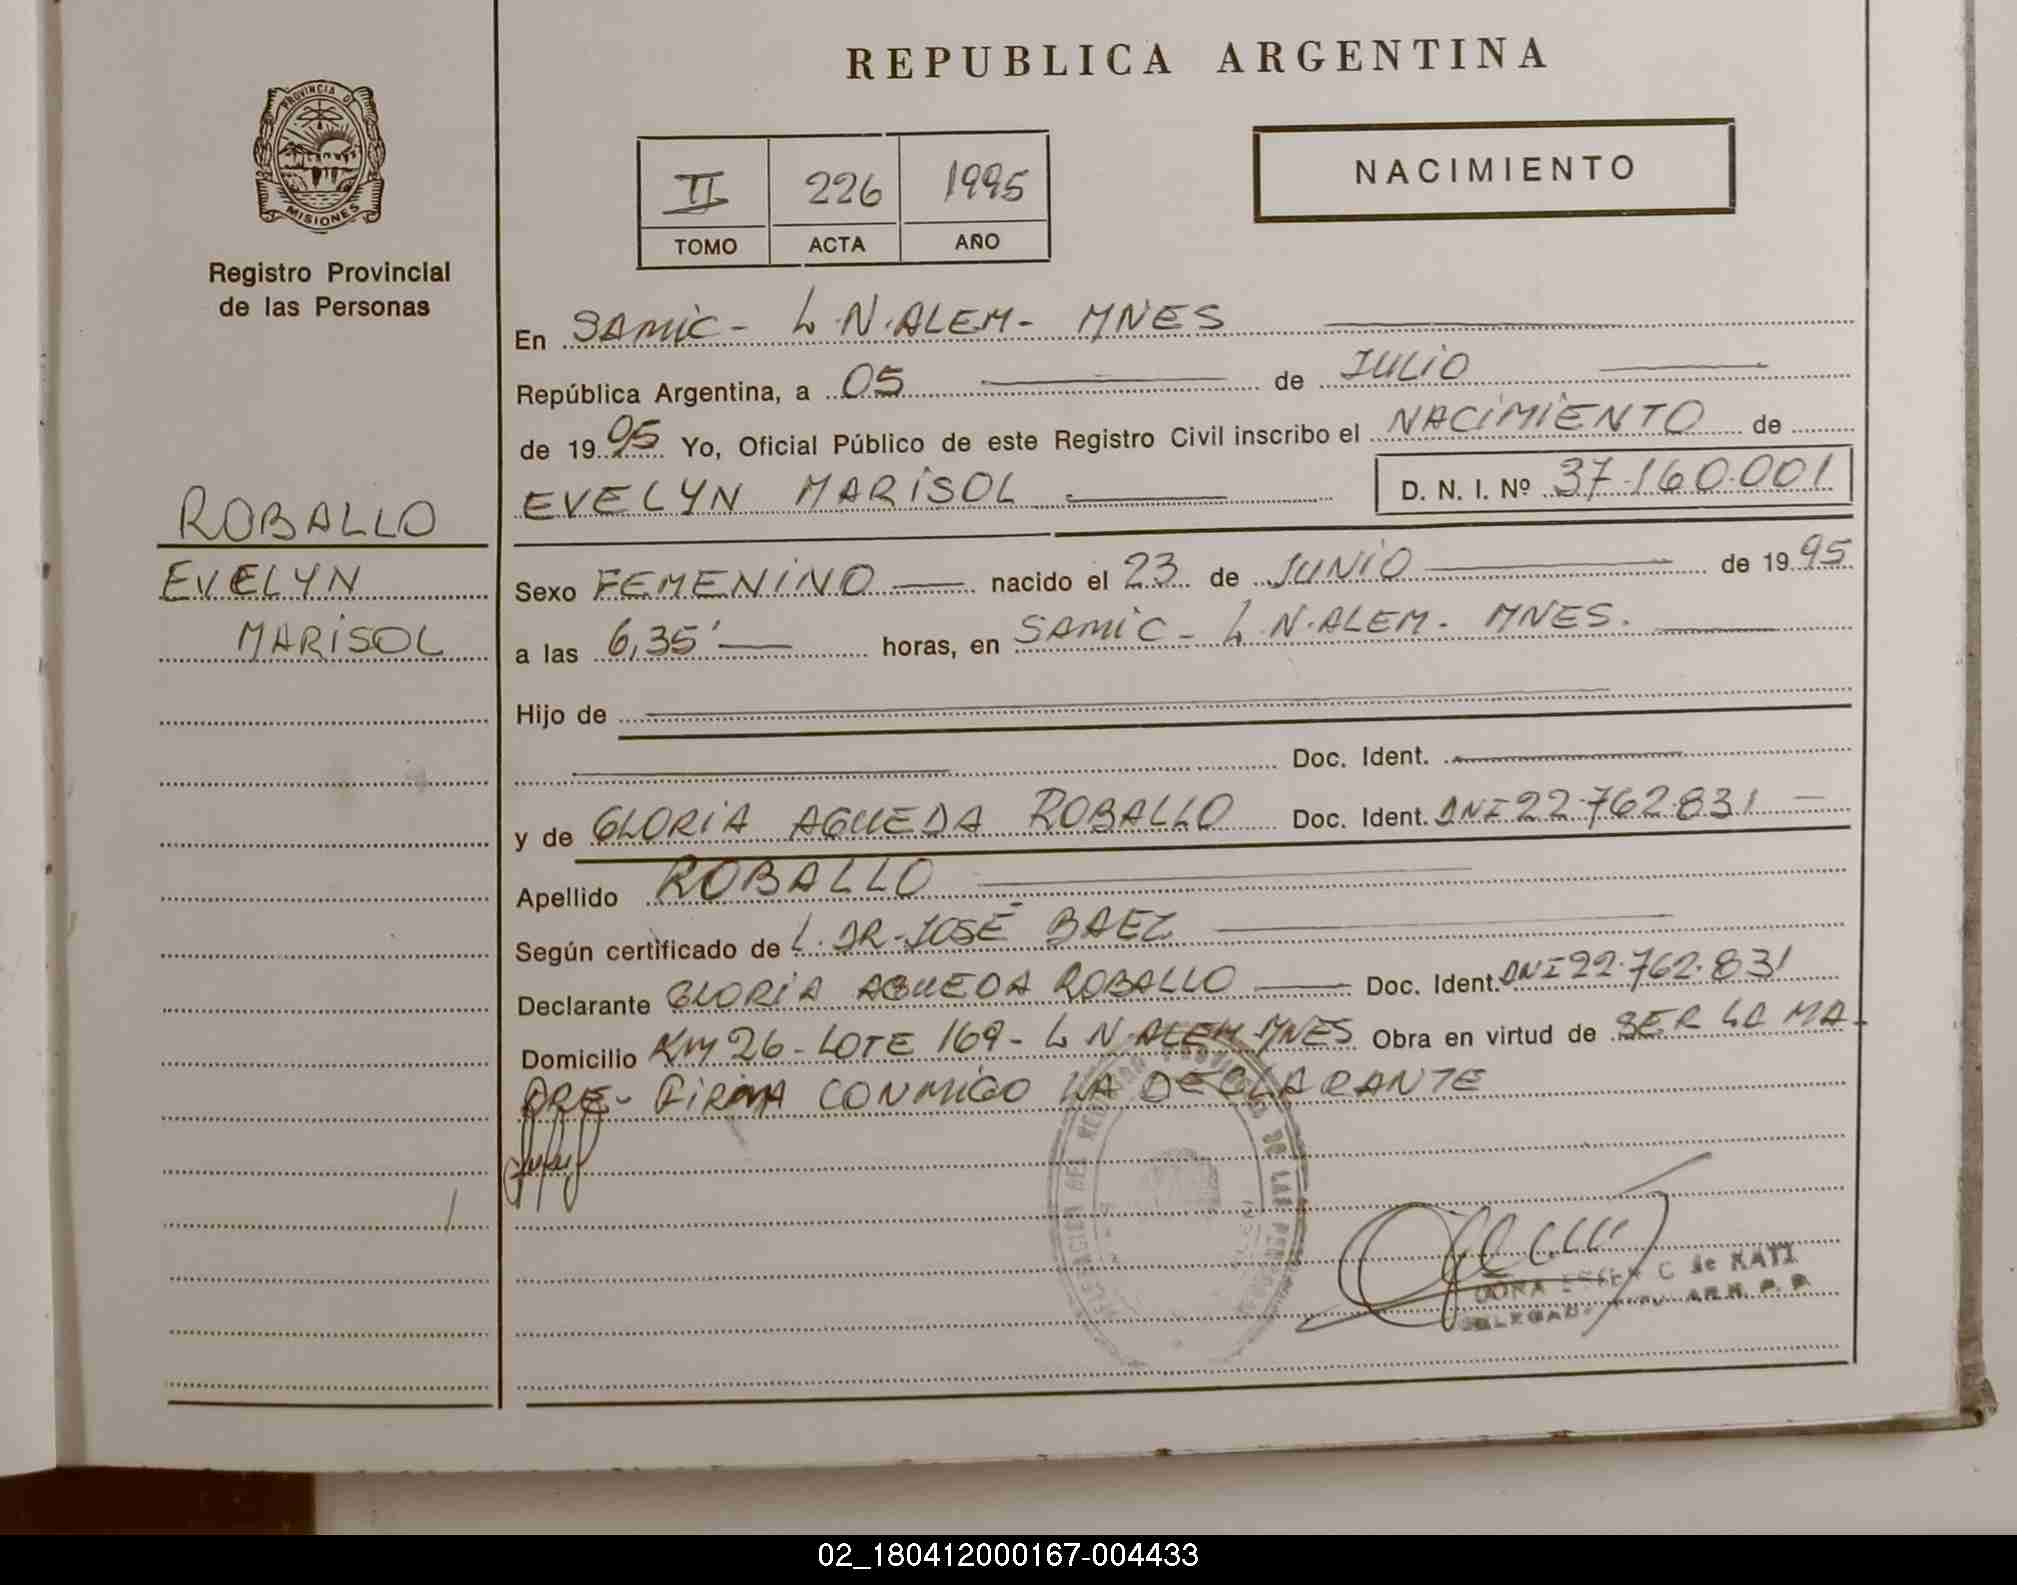 REPUBLICA ARGENTINA
PROVINCIA DE
MISIONES
Registro Provincial
de las Personas
NACIMIENTO
II 226 1995
TOMO ACTA AÑO
En SAMIC - L.N.ALEM - MNES
República Argentina, a 05 de JULIO
de 1995 Yo, Oficial Público de este Registro Civil inscribo el NACIMIENTO de
EVELYN MARISOL D. N. I. Nº 37.160.001
ROBALLO
EVELYN
MARISOL
Sexo FEMENINO nacido el 23 de JUNIO de 1995
a las 6,35' horas, en SAMIC - L.N.ALEM - MNES.
Hijo de
Doc. Ident.
y de GLORIA AGUEDA ROBALLO Doc. Ident. DNI 22.762.831 -
Apellido ROBALLO
Según certificado de L. DR. JOSÉ BAEZ
Declarante GLORIA AGUEDA ROBALLO Doc. Ident. DNI 22.762.831
Domicilio KM 26 - LOTE 169 - L N ALEM - MNES Obra en virtud de SER LA MA-
DRE - FIRMA CONMIGO LA DECLARANTE
DE LAS
C de KATZ
02_180412000167-004433